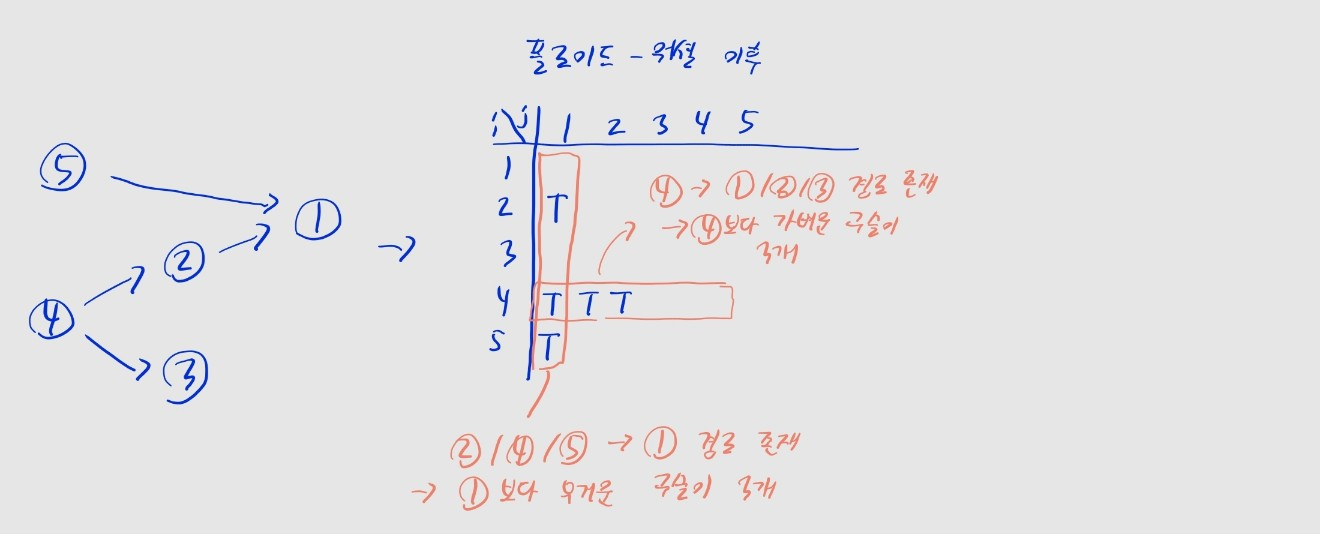 플로이드 - 워셜 이후
i\j 1 2 3 4 5
1
2 T
3
4 T T T
5 T
⑤
①
②
④
③
→
④ → ①/②/③ 경로 존재
→ ④보다 가벼운 구슬이
3개
②/④/⑤ → ① 경로 존재
→ ①보다 무거운 구슬이 3개